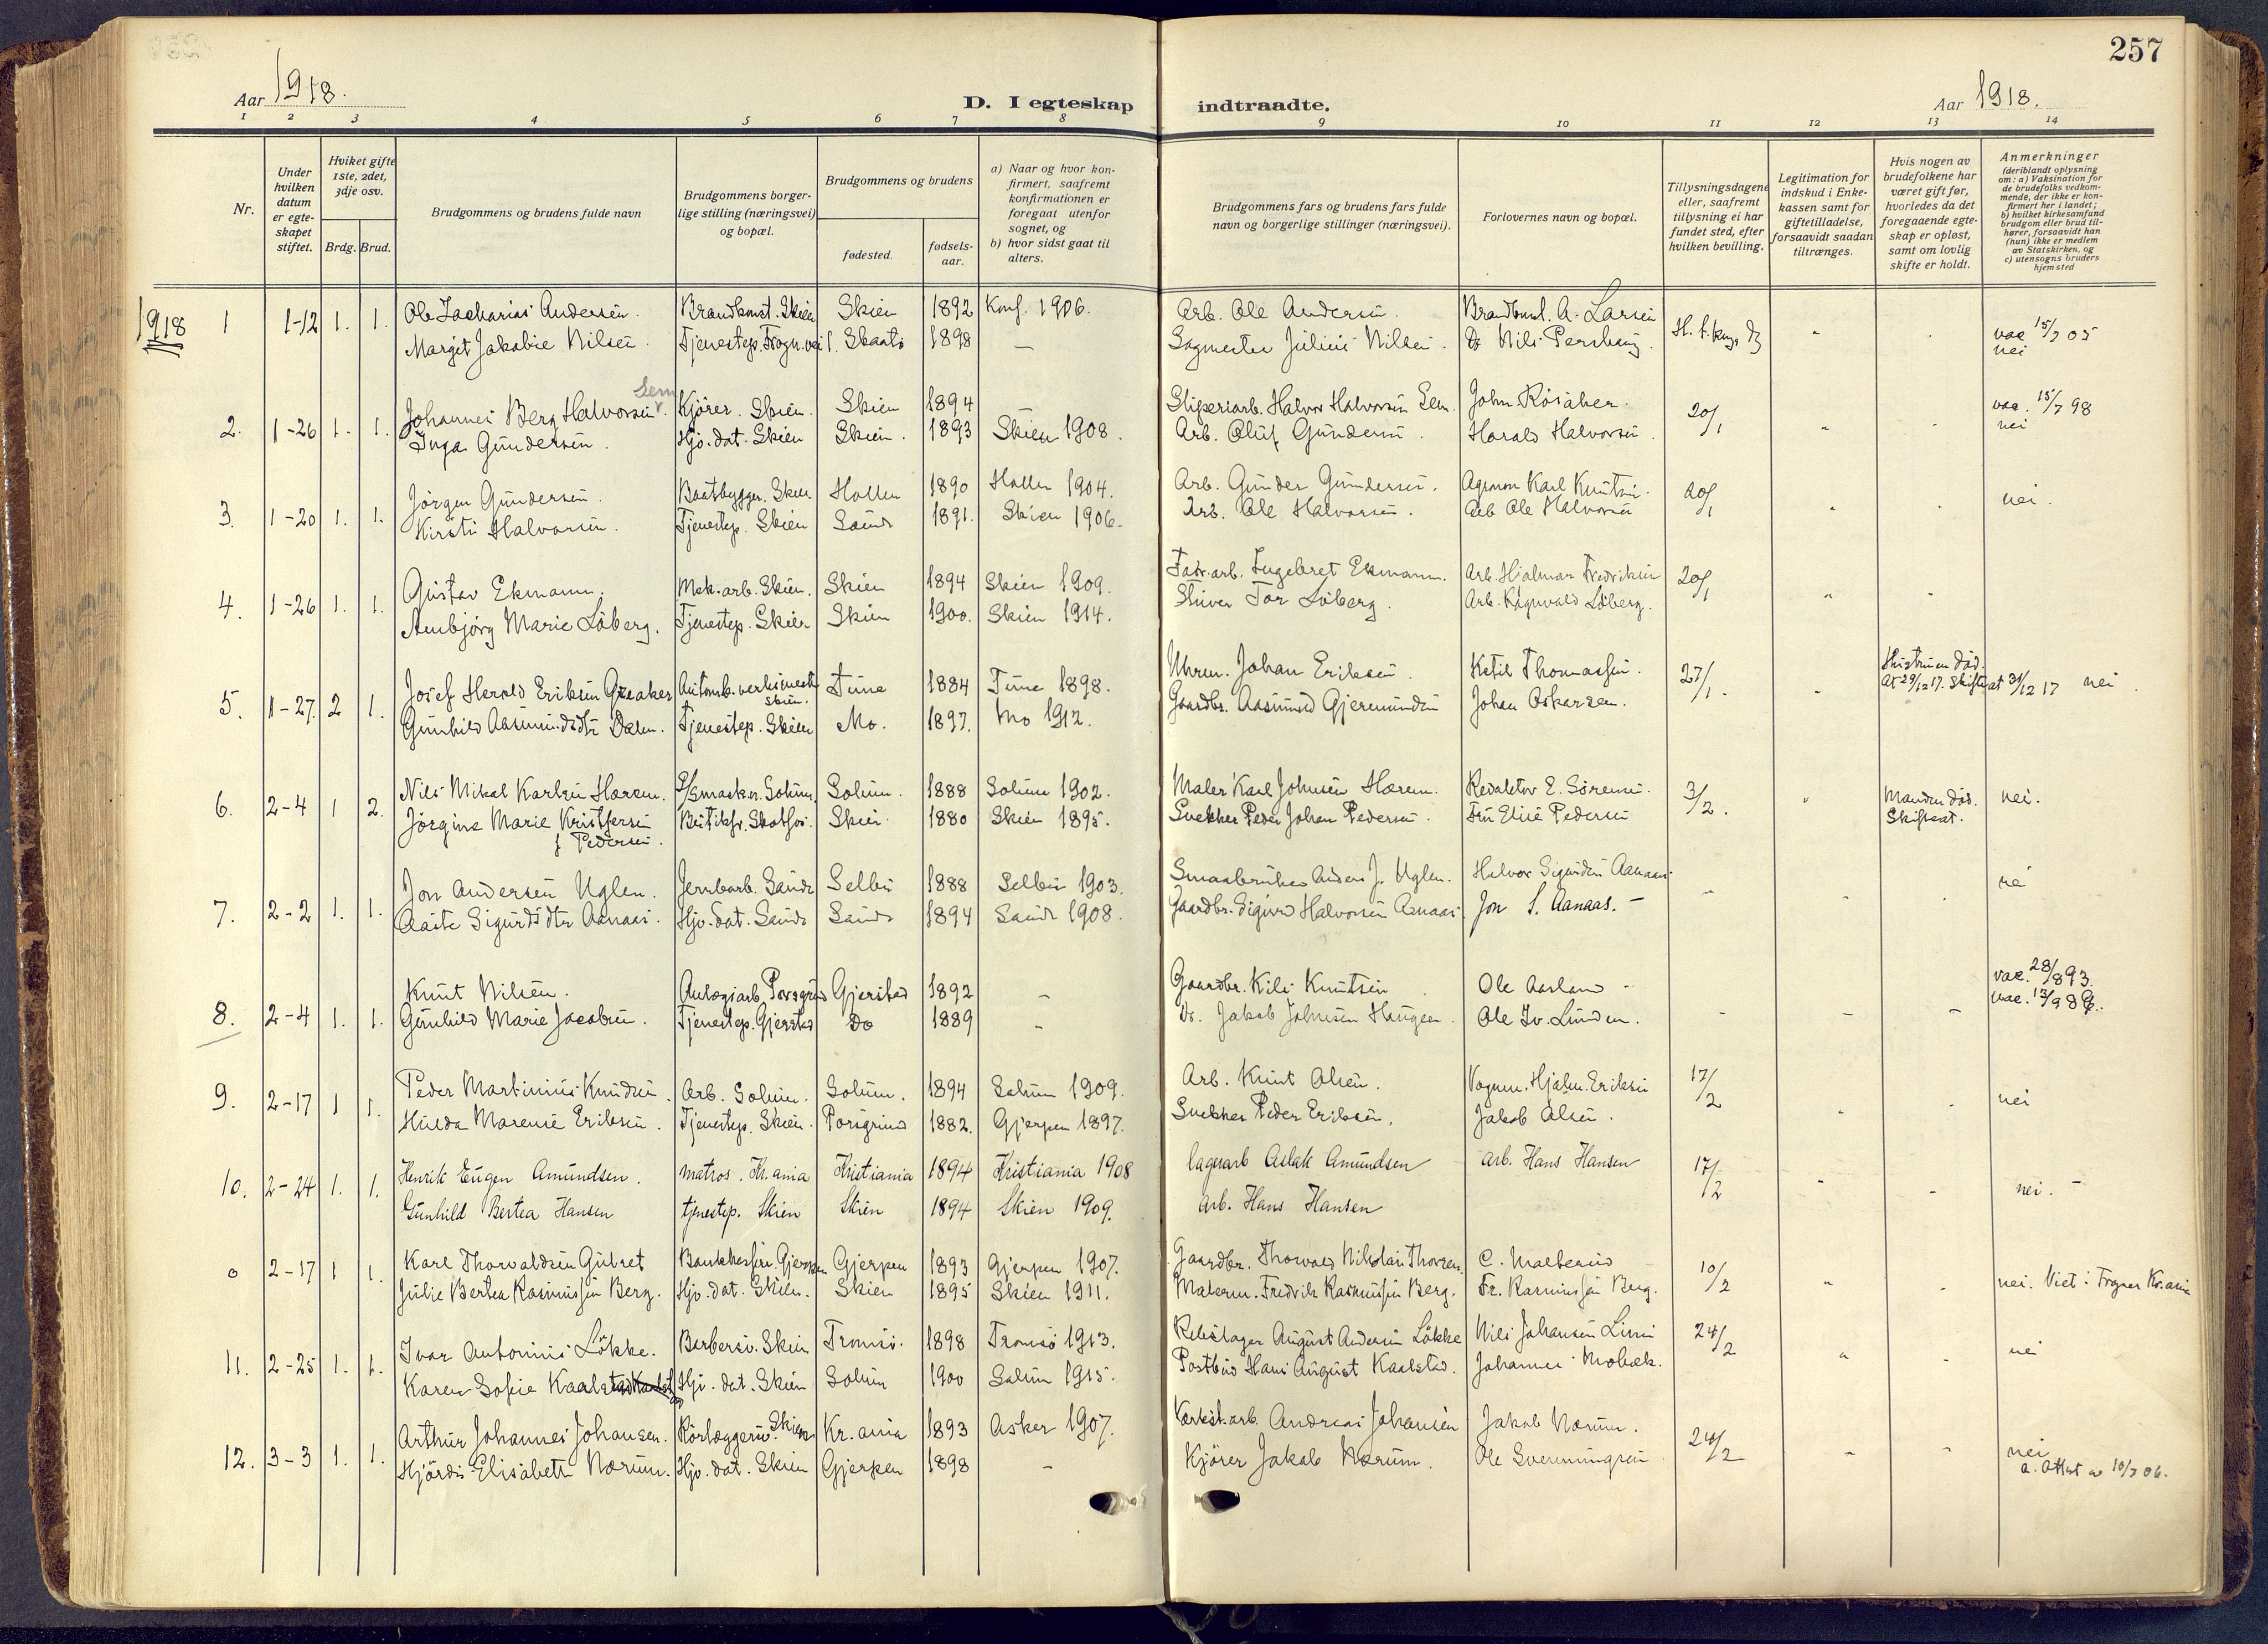 257
Aar 1918.
D. I egteskap indtraadte.
Aar 1918.
1 2 3 4 5 6 7 8 9 10 11 12 13 14
Nr.
Under hvilken datum er egteskapet stiftet.
Hviket gifte 1ste, 2det, 3dje osv.
Brdg. Brud.
Brudgommens og brudens fulde navn
Brudgommens borgerlige stilling (næringsvei) og bopæl.
Brudgommens og brudens
fødested. fødselsaar.
a) Naar og hvor konfirmert, saafremt konfirmationen er foregaat utenfor sognet, og
b) hvor sidst gaat til alters.
Brudgommens fars og brudens fars fulde navn og borgerlige stillinger (næringsvei).
Forlovernes navn og bopæl.
Tillysningsdagene eller, saafremt tillysning ei har fundet sted, efter hvilken bevilling.
Legitimation for indskud i Enkekassen samt for giftetilladelse, forsaavidt saadan tiltrænges.
Hvis nogen av brudefolkene har været gift før, hvorledes da det foregaaende egteskap er opløst, samt om lovlig skifte er holdt.
Anmerkninger (deriblandt oplysning om: a) Vaksination for de brudefolks vedkommende, der ikke er konfirmert her i landet; b) hvilket kirkesamfund brudgom eller brud tilhører, forsaavidt han (hun) ikke er medlem av Statskirken, og c) utensogns bruders hjemsted
1918 1 1-12 1. 1. Ole Zacharias Andersen. Brandkonst. Skien Skien 1892 Konf. 1906. Arb. Ole Andersen. A. Larsen vac 15/7 05
Margit Jakobie Nilsen. Tjenestep. 1898 — Sagmester Julius Nilsen. Do Nils nei
2. 1-26 1. 1. Johannes Berg Halvorsen Sem. Kjører. Skien. Skien 1894 — Sliperiarb. Halvor Halvorsen Sem. John Rösaker. 20/1 " " vac. 15/7 98
Inga Gundersen. Hjv. dat. Skien Skien. 1893 Skien 1908. Arb. Oluf Gundersen. Harald Halvorsen. nei
3. 1-20 1. 1. Jörgen Gundersen. Baatbygger. Skien Hollen 1890 Hollen 1904. Arb. Gunder Gundersen. Agronom Karl Knutsen. 20/1 " " nei.
Kirsti Halvorsen. Tjenestep. Skien Sande 1891. Skien 1906. Arb. Ole Halvorsen. Arb Ole Halvorsen
4. 1-26 1. 1. Gustav Ekmann. Mek. arb. Skien. Skien 1894 Skien 1909. Fabr. arb. Ingebret Ekmann. Arb. Hjalmar Fredriksen 20/1 " "
Anbjörg Marie Löberg. Tjenestep. Skien Skien 1900. Skien 1914. Skriver Tor Löberg. Arb. Ragnvald Löberg.
5. 1-27. 2 1. Josef Herold Eriksen Greaker Automb. verksmester Skien. Tune 1884 Tune 1898. Urm. Johan Eriksen. Ketil Thomassen. 27/1. " Hustruen död. at 29/12 17. Skiftet 31/12 17 nei.
Gunhild Aasmundsdtr Dalen. Tjenestep. Skien Mo. 1897. Mo 1912. Gaardbr. Aasmund Gjermundsen Johan Oskarsen.
6. 2-4 1 2. Nils Mikal Karlsen Hærem. Solum. Solum. 1888 Solum 1902. Maler Karl Johnsen Hærem. Redaktör E. Sörensen. 3/2. " Manden död. Skiftet. nei.
Jörgine Marie Kristensen f Pedersen. Butikfr. Skotfos. Skien. 1880 Skien 1895. Snekker Peder Johan Pedersen. Fru Elise Pedersen
7. 2-2 1. 1. Jon Andersen Uglen. Jernbarb. Sande Selbu 1888 Selbu 1903. Smaabruker Anders J. Uglen. Halvor Sigurdsen Aanaas. " " nei
Aaste Sigurdsdtr Aanaas. Hjv. dat. Sande Sande 1894 Sande 1908. Gaardbr. Sigurd Halvorsen Aanaas Jon S. Aanaas. —
8. 2-4 1. 1. Knut Nilsen. Anlægsarb. Porsgrund Gjerstad 1892 — Gaardbr. Nils Knutsen Ole Aasland — vac. 28/8 93.
Gunhild Marie Jacobsen. Tjenestep. Gjerstad Do 1889 — Do. Jakob Johnsen Haugen. Ole Iv. Lunden. vac. 13/9 88.
9. 2-17 1 1. Peder Martinius Knudsen. Arb. Solum. Solum. 1894 Solum 1909. Arb. Knut Olsen. Vognm. Hjalm. Eriksen 17/2 " " nei
Hulda Marensie Eriksen. Tjenestep. Skien. Porsgrund 1882. Gjerpen 1897. Snekker Peder Eriksen. Jakob Olsen.
10. 2-24 1. 1. Henrik Eugen Amundsen. matros. Kr.ania Kristiania 1894 Kristiania 1908 lagerarb Aslak Amundsen arb. Hans Hansen 17/2 " " nei. —
Gunhild Bertea Hansen tjenestep. Skien Skien 1894 Skien 1909. arb. Hans Hansen
o 2-17 1 1. Karl Thorvaldsen Gulset Bankkasser. Gjerpen Gjerpen 1893 Gjerpen 1907. Gaardbr. Thorvald Nikolai Thorsen. C. Malterud 10/2 " " nei. Viet i Frogner Kr.ania
Julie Bertea Rasmussen Berg. Hjv. dat. Skien. Skien 1895 Skien 1911. Malerm. Fredrik Rasmussen Berg. Fr. Rasmussen Berg.
11. 2-25 1. 1. Ivar Antonius Lökke. Barbersv. Skien Tromsö. 1898 Tromsö 1913. Rebslager August Andersen Lökke Nils Johansen Lunn 24/2 " " nei
Karen Sofie Kaalstad Hjv. dat. Skien Solum 1900 Solum 1915. Postbud Hans August Kaalstad. Johannes Mobæk.
12. 3-3 1. 1. Arthur Johannes Johansen. Rörlæggersv. Skien Kr.ania 1893 Asker 1907. Verkst. arb. Andreas Johansen Jakob Nærum. 24/2 — — nei
Hjördis Elisabeth Nærum. Hjv. dat. Skien Gjerpen 1898 — Kjører Jakob Nærum. Ole Svenningsen a. Attest av 10/7 06.